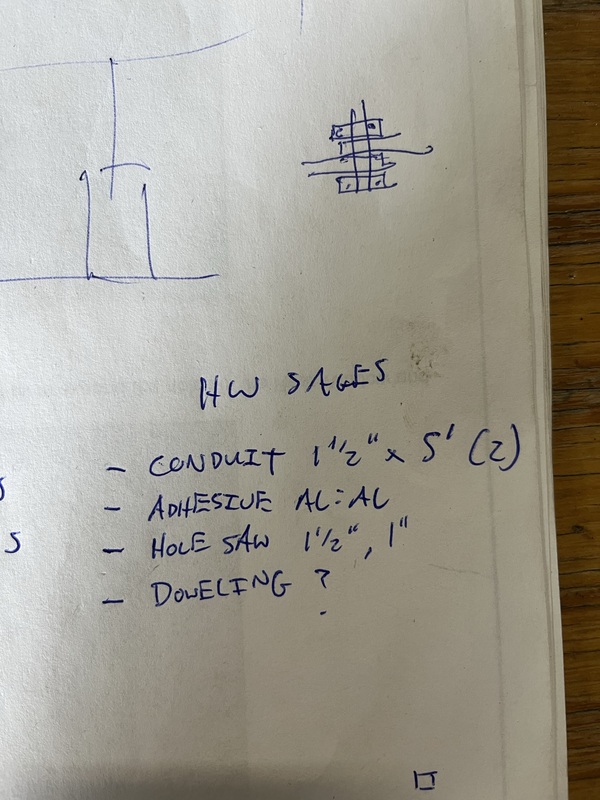 HW SAGES
- CONDUIT 1 1/2" x 5' (2)
S
- ADHESIVE AC:AC
S
- HOLE SAW 1 1/2", 1"
- DOWELING ?